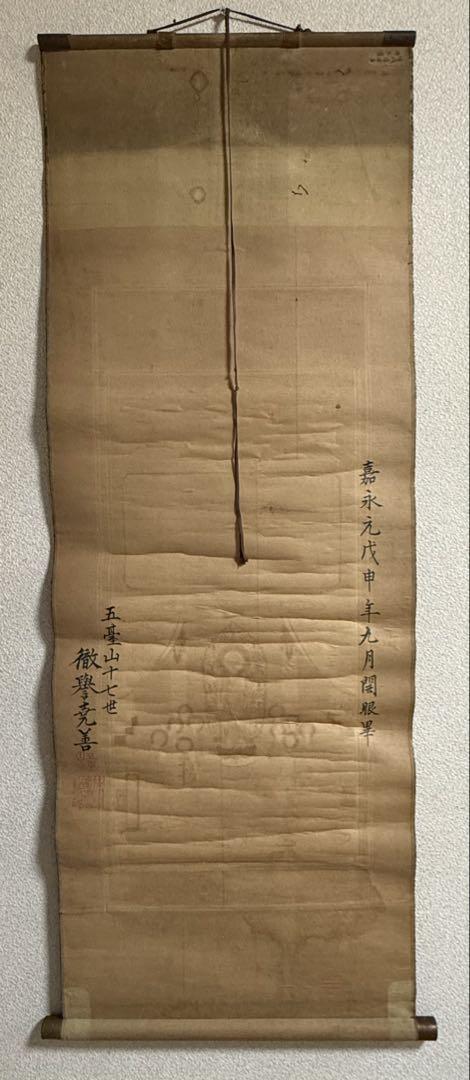 嘉永元戊申年九月開眼畢
五臺山十七世
徹譽尭善